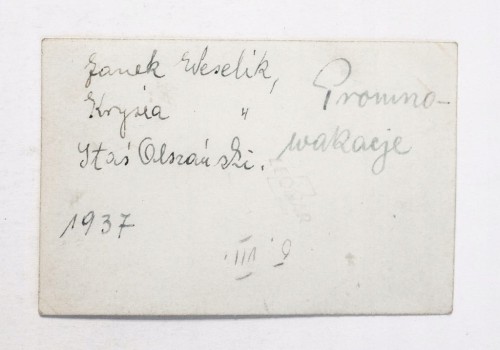 Janek Weselik,
Krysia "
Staś Olszański.
Promna-
wakacje
1937